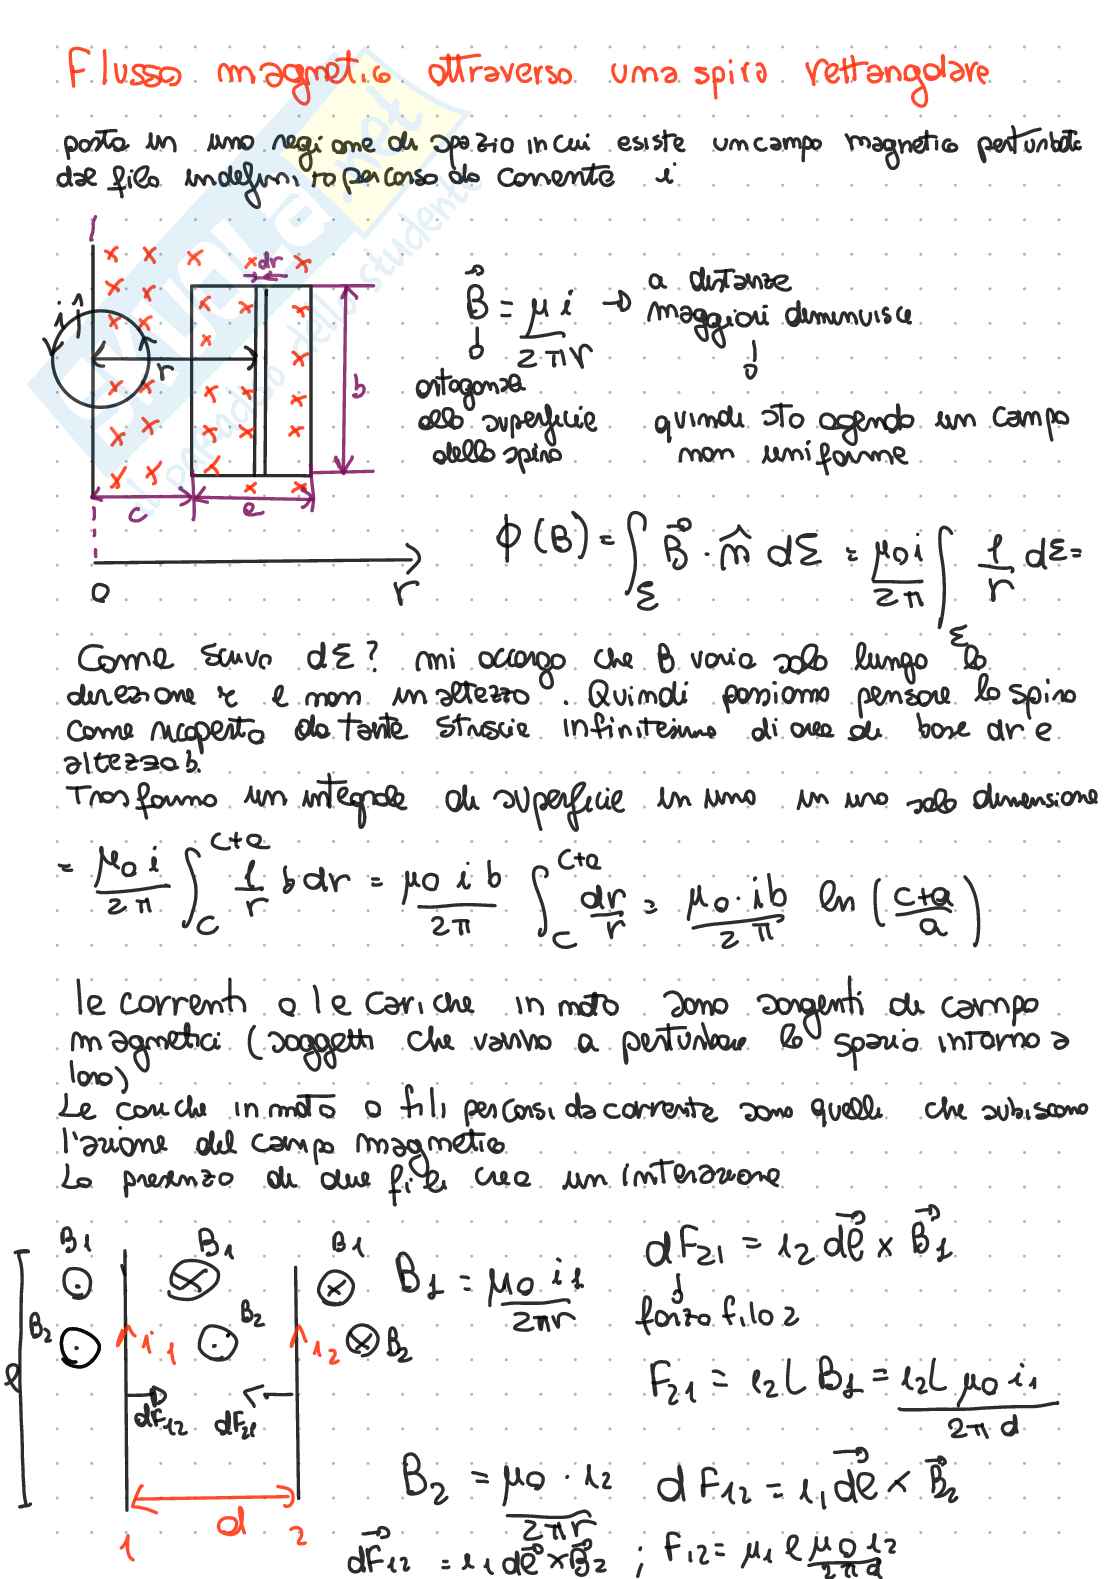 Flusso magnetico attraverso una spira rettangolare
posta in una regione di spazio in cui esiste un campo magnetico perturbato
dal filo indefinito percorso da corrente i
x x x x dr x
i r b
c a
0 r
B⃗ = μ i / 2πr → a distanze
maggiori diminuisce
ortogonale
alla superficie
della spira
quindi sto agendo un campo
non uniforme
ϕ(B) = ∫_Σ B⃗ · n̂ dΣ = μ0 i / 2π ∫_Σ 1/r dΣ =
Come scrivo dΣ? mi accorgo che B varia solo lungo la
direzione r e non in altezza. Quindi possiamo pensare la spira
come ricoperta da tante striscie infinitesime di area di base dr e
altezza b.
Trasformo un integrale di superficie in uno in una sola dimensione
= μ0 i / 2π ∫_c^{c+a} 1/r b dr = μ0 i b / 2π ∫_c^{c+a} dr/r = μ0 · i b / 2π ln (c+a / a)
le correnti o le cariche in moto sono sorgenti di campo
magnetici (soggetti che vanno a perturbare lo spazio intorno a
loro)
Le cariche in moto o fili percorsi da corrente sono quelle che subiscono
l'azione del campo magnetico
La presenza di due fili crea un interazione
B1 B1 B1
B2 B2 B2
i1 i2
l
dF12 dF21
d
1 2
B1 = μ0 i1 / 2πr
dF21 = i2 dl⃗ x B⃗1
forza filo 2
F21 = i2 L B1 = i2 L μ0 i1 / 2π d
B2 = μ0 · i2 / 2πr
dF12 = i1 dl⃗ x B⃗2
dF⃗12 = i1 dl⃗ x B⃗2 ; F12 = μ1 l μ0 i2 / 2πd
SKUOLA.net
il paradiso dello studente